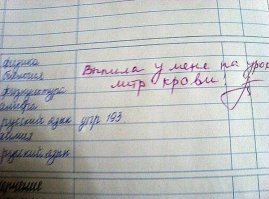 физика
биология
физкультура
алгебра
русский язык упр 193
химия
русский язык
Выпила у меня на урок
литр крови!